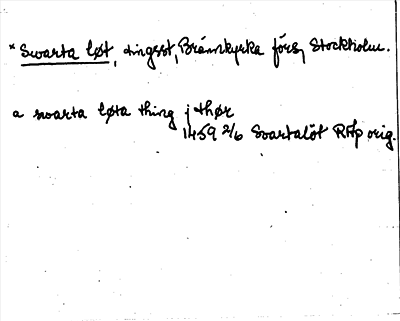 * Swarta løt, tingsst, Brännkyrka förs, Stockholm.
a swarta løta thing j thør
1459 2/6 Svartalöt RAp orig.